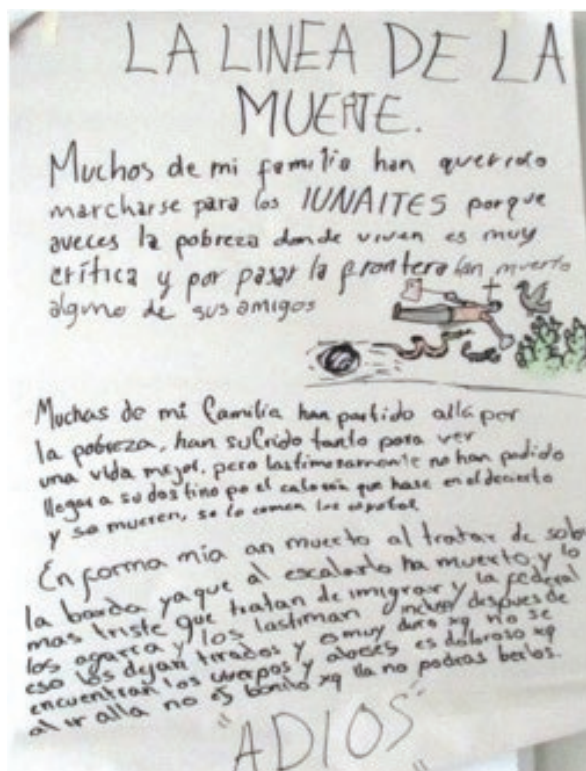 LA LINEA DE LA
MUERTE.
Muchos de mi familia han querido
marcharse para los IUNAITES porque
aveces la pobreza donde viven es muy
crítica y por pasar la frontera han muerto
alguno de sus amigos
Muchas de mi familia han partido allá por
la pobreza, han sufrido tanto para ver
una vida mejor, pero lastimosamente no han podido
llegar a su destino po el calor que hase en el decierto
y se mueren, se lo comen los
En forma mia an muerto al tratar de
la barda ya que al escalarlo ha muerto y lo
mas triste que tratan de imigrar y la federal
los agarra y los lastiman despues de
eso los dejan tirados y es muy duro xq no se
encuentran los cuerpos y abeses es doloroso xq
al ir alla no es bonito xq lla no podras berlos.
"ADIOS"